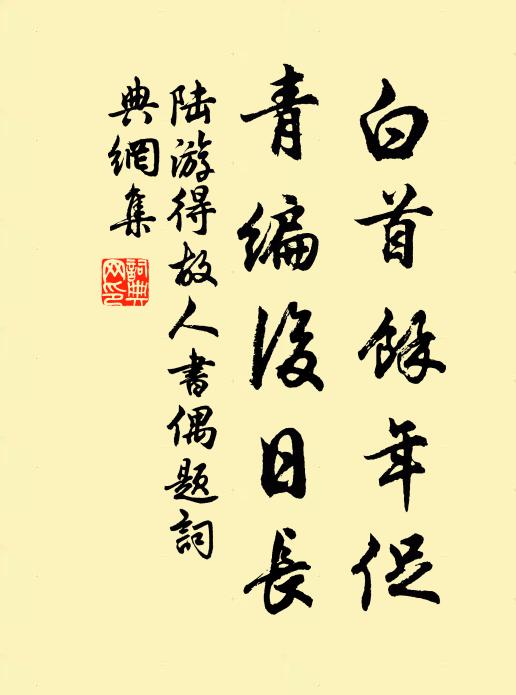 白首餘年促
青編後日長
陆游得故人書偶题詞
典網集
詞典
网印